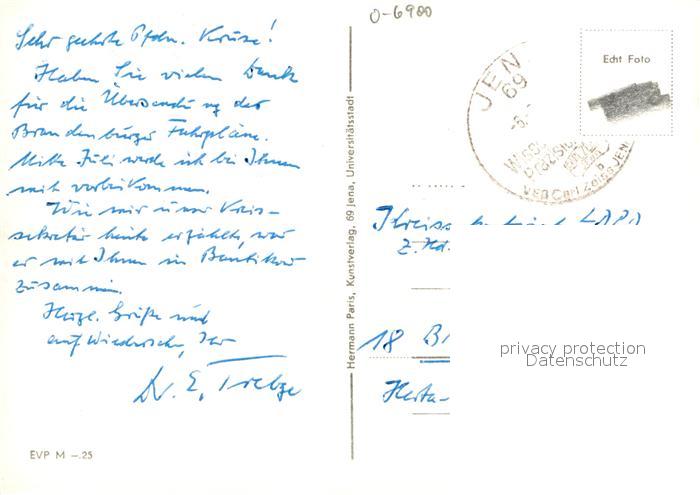 Sehr geehrte Pfdn. Kruse!
Haben Sie vielen Dank
für die Übersendung der
Brandenburger Fahrpläne.
Mitte Juli werde ich bei Ihnen
mit vorbeikommen.
Wie mir unser Kreis-
sekretär heute erzählte, war
er mit Ihnen in Bantikow
zusammen.
Herzl. Grüße und
auf Wiedersehen, Ihr
Dr. E. Trebge
EVP M —.25
Hermann Paris, Kunstverlag, 69 Jena, Universitätsstadt
0-6900
JEN
69
VEB Carl Zeiss JEN
Echt Foto
z. Hd.
18 B
Herta-
privacy protection
Datenschutz